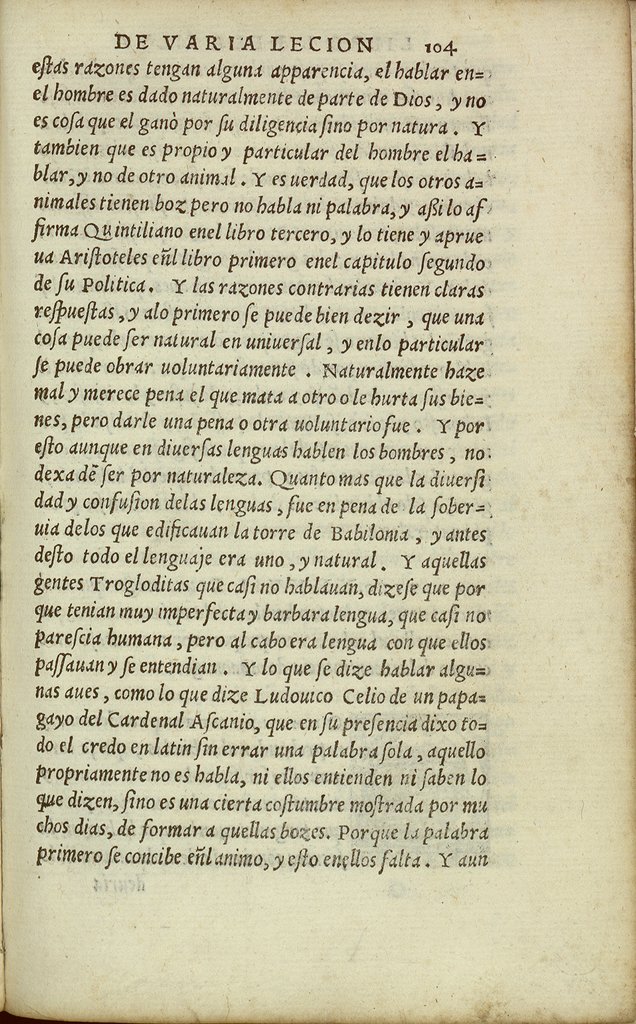 DE VARIA LECION 104
estas razones tengan alguna apparencia, el hablar en=
el hombre es dado naturalmente de parte de Dios, y no
es cosa que el ganò por su diligencia sino por natura. Y
tambien que es propio y particular del hombre el ha=
blar, y no de otro animal. Y es uerdad, que los otros a=
nimales tienen boz pero no habla ni palabra, y aßi lo af
firma Quintiliano enel libro tercero, y lo tiene y aprue
ua Aristoteles eñl libro primero enel capitulo segundo
de su Politica. Y las razones contrarias tienen claras
respuestas, y alo primero se puede bien dezir, que una
cosa puede ser natural en uniuersal, y enlo particular
se puede obrar uoluntariamente. Naturalmente haze
mal y merece pena el que mata a otro o le hurta sus bie=
nes, pero darle una pena o otra uoluntario fue. Y por
esto aunque en diuersas lenguas hablen los bombres, no
dexa dē ser por naturaleza. Quanto mas que la diuersi
dad y confusion delas lenguas, fue en pena de la sober=
uia delos que edificauan la torre de Babilonia, y antes
desto todo el lenguaje era uno, y natural. Y aquellas
gentes Trogloditas que casi no hablauan, dizese que por
que tenian muy imperfecta y barbara lengua, que casi no
parescia humana, pero al cabo era lengua con que ellos
passauan y se entendian. Y lo que se dize hablar algu=
nas aues, como lo que dize Ludouico Celio de un papa=
gayo del Cardenal Ascanio, que en su presencia dixo to=
do el credo en latin sin errar una palabra sola, aquello
propriamente no es habla, ni ellos entienden ni saben lo
que dizen, sino es una cierta costumbre mostrada por mu
chos dias, de formar a quellas bozes. Porque la palabra
primero se concibe eñl animo, y esto enellos falta. Y aun